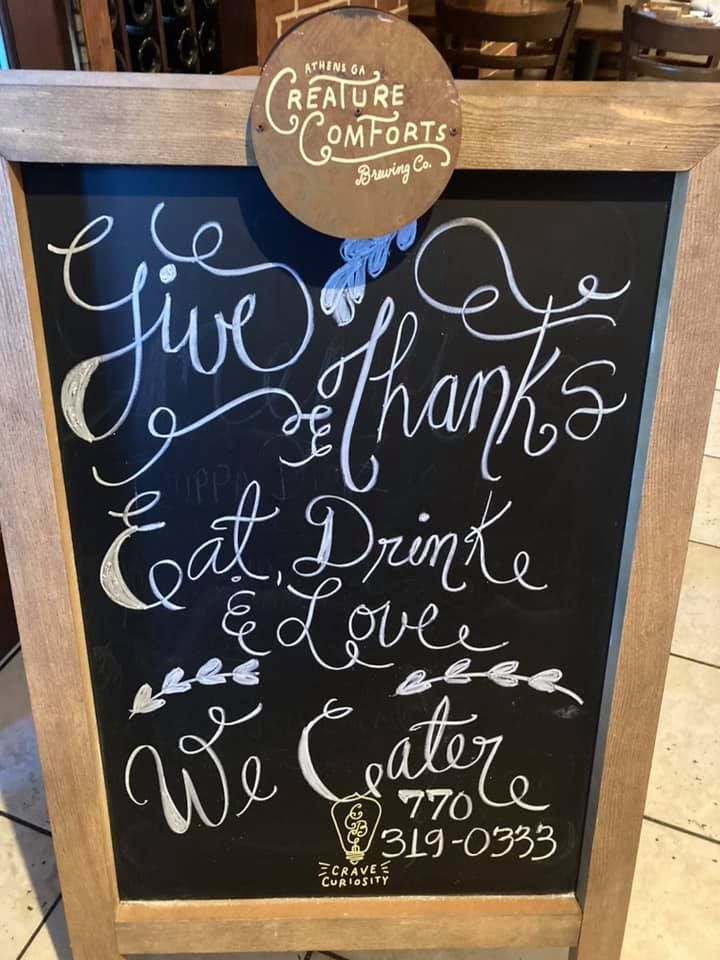 ATHENS GA
CREATURE
COMFORTS
Brewing Co.
Give
& Thanks
Eat, Drink
& Love
We Cater
770
319-0333
CCBC
CRAVE
CURIOSITY